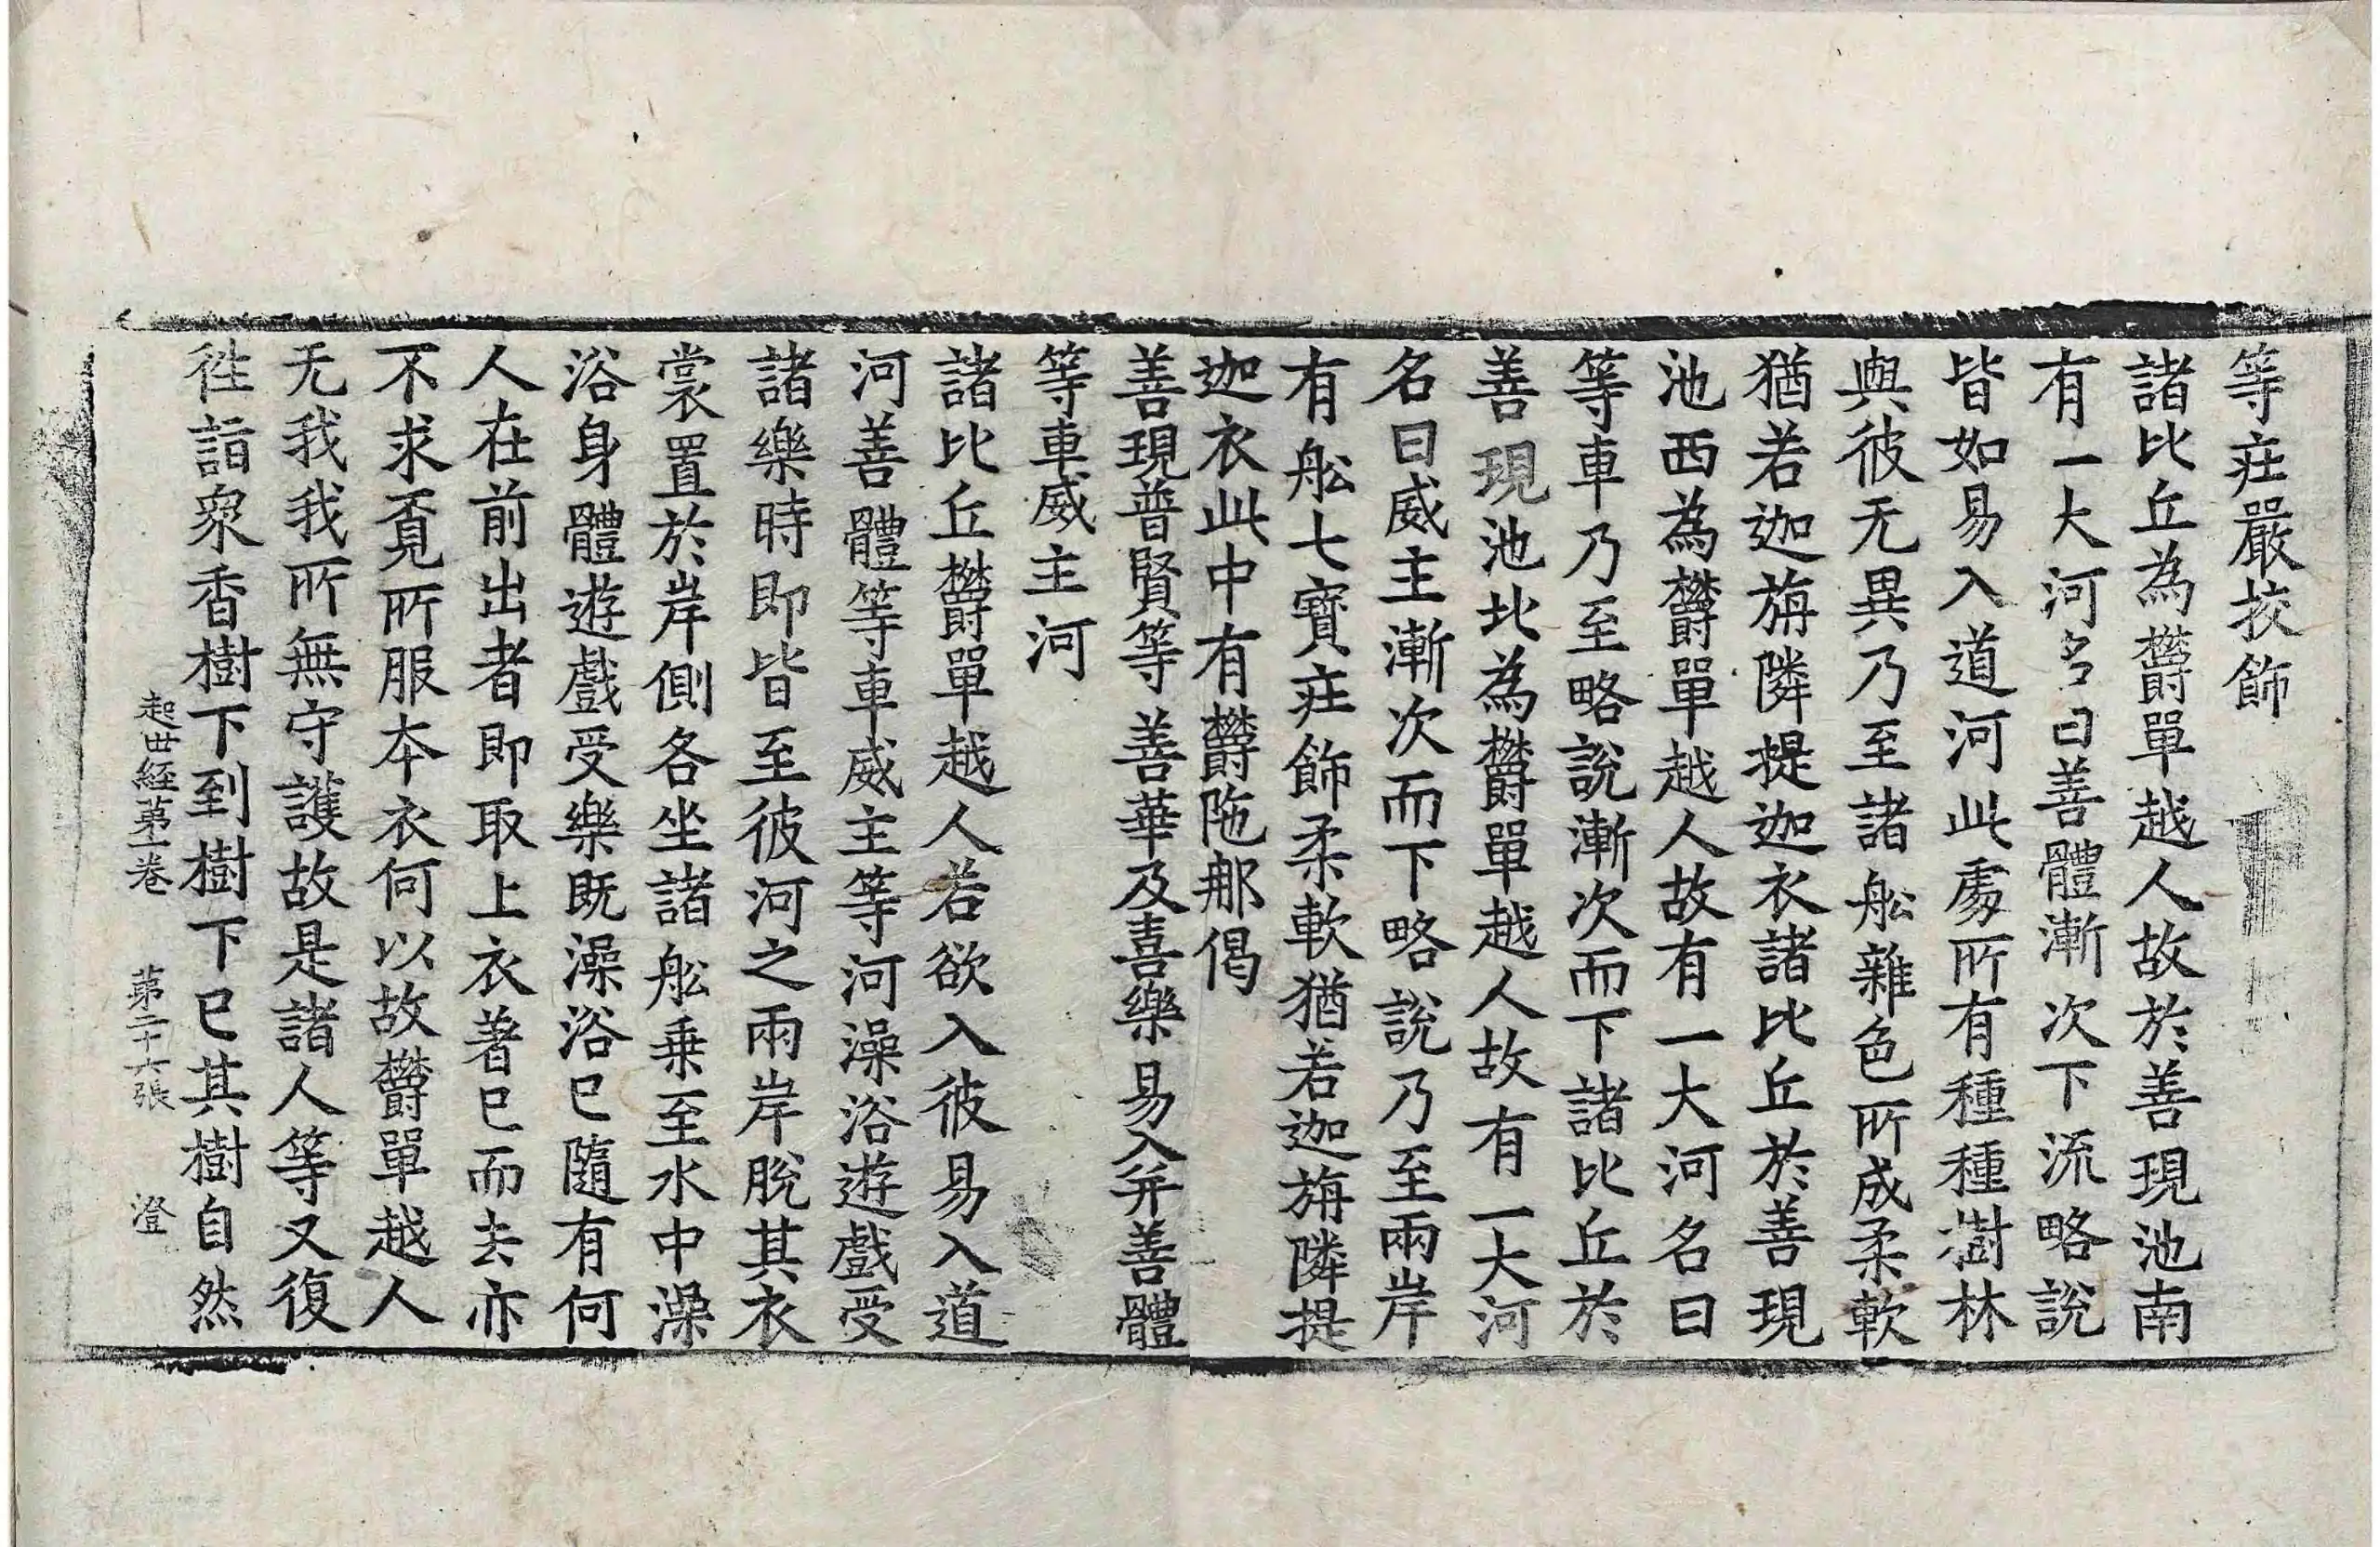 等莊嚴挍飾
諸比丘為欝單越人故於善現池南
有一大河名曰善體漸次下流略說
皆如易入道河此處所有種種樹林
與彼无異乃至諸舩雜色所成柔軟
猶若迦旃隣提迦衣諸比丘於善現
池西為欝單越人故有一大河名曰
等車乃至略說漸次而下諸比丘於
善現池北為欝單越人故有一大河
名曰威主漸次而下略說乃至兩岸
有舩七寶莊飾柔軟猶若迦旃隣提
迦衣此中有欝陁那偈
善現普賢等善華及喜樂易入并善體
等車威主河
諸比丘欝單越人若欲入彼易入道
河善體等車威主等河澡浴遊戲受
諸樂時即皆至彼河之兩岸脫其衣
裳置於岸側各坐諸舩乗至水中澡
浴身體遊戲受樂既澡浴已隨有何
人在前出者即取上衣著已而去亦
不求覓所服本衣何以故欝單越人
无我我所無守護故是諸人等又復
徃詣衆香樹下到樹下已其樹自然
起世経苐一卷 苐二十六張 澄